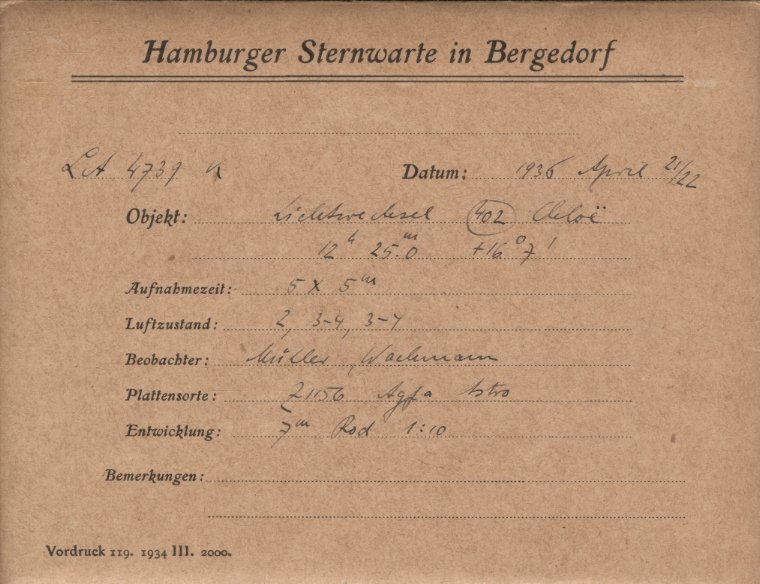 Hamburger Sternwarte in Bergedorf
LA 4739 Datum: 1936 April 21/22
Objekt: Lichtwechsel 402 Chloë
12h 25.m0 +16°7'
Aufnahmezeit: 5 x 5m
Luftzustand: 2, 3-4, 3-4
Beobachter: Müller, Wachmann
Plattensorte: Z1156 Agfa Astro
Entwicklung: 7m Rod 1:10
Bemerkungen:
Vordruck 119. 1934 III. 2000.